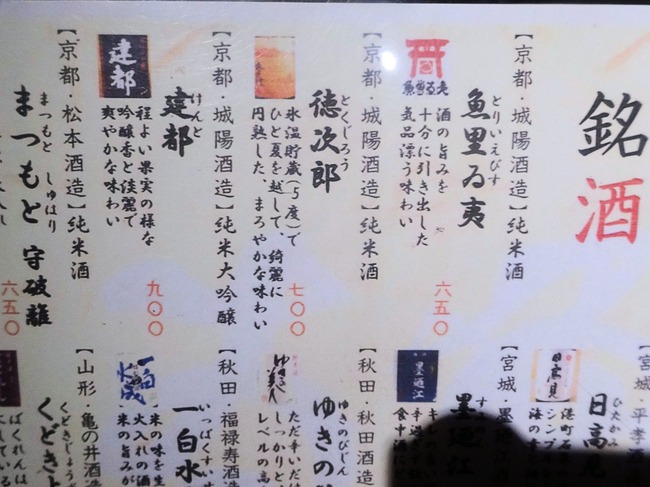 銘酒
【京都・城陽酒造】純米酒
とりいえびす
魚里ゐ夷
酒の旨みを
十分に引き出した
気品漂う味わい
六五〇
魚里ゐ夷
【京都・城陽酒造】純米酒
とくじろう
徳次郎
氷温貯蔵(5度)で
ひと夏を越して、綺麗に
円熟した、まろやかな味わい
七〇〇
【京都・城陽酒造】純米大吟醸
けんと
建都
程よい果実の様な
吟醸香と淡麗で
爽やかな味わい
九〇〇
建都
【京都・松本酒造】純米酒
まつもと しゅはり
まつもと 守破離
六五〇
【宮城・平孝酒
ひたかみ
日高見
港町石
シンプ
海の幸
日高見
【宮城・墨
墨廼江
食中酒に
墨廼江
【秋田・秋田酒造
ゆきのびじん
ゆきの
ただ辛いだけ
しっかりと
レベルの高
ゆきの美人
【秋田・福禄寿酒造
いっぱくすい
一白水
米の味を生
火入れの酒
米の旨みが
一白水成
【山形・亀の井酒造
くどきじょう
くどき上
ばくれんは